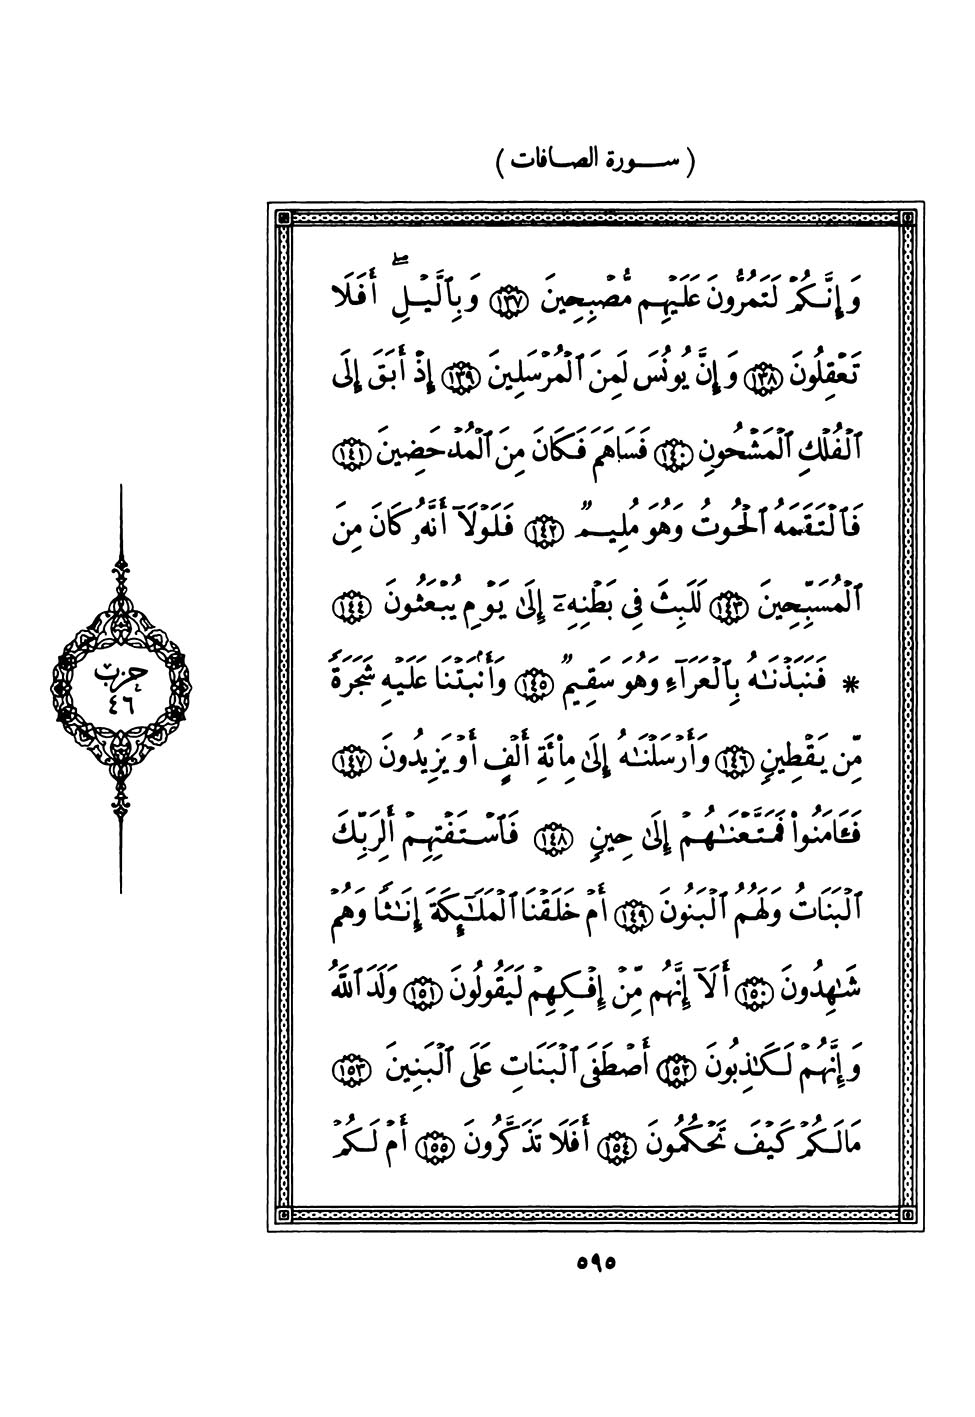 ( سـورة الصافات )
وَإِنَّكُمْ لَتَمُرُّونَ عَلَيْهِم مُّصْبِحِينَ ١٣٧ وَبِٱلَّيْلِۗ أَفَلَا
تَعْقِلُونَ ١٣٨ وَإِنَّ يُونُسَ لَمِنَ ٱلْمُرْسَلِينَ ١٣٩ إِذْ أَبَقَ إِلَى
ٱلْفُلْكِ ٱلْمَشْحُونِ ١٤٠ فَسَاهَمَ فَكَانَ مِنَ ٱلْمُدْحَضِينَ ١٤١
فَٱلْتَقَمَهُ ٱلْحُوتُ وَهُوَ مُلِيمٌ ١٤٢ فَلَوْلَآ أَنَّهُۥ كَانَ مِنَ
ٱلْمُسَبِّحِينَ ١٤٣ لَلَبِثَ فِى بَطْنِهِۦٓ إِلَىٰ يَوْمِ يُبْعَثُونَ ١٤٤
* فَنَبَذْنَـٰهُ بِٱلْعَرَآءِ وَهُوَ سَقِيمٌ ١٤٥ وَأَنۢبَتْنَا عَلَيْهِ شَجَرَةً
مِّن يَقْطِينٍ ١٤٦ وَأَرْسَلْنَـٰهُ إِلَىٰ مِا۟ئَةِ أَلْفٍ أَوْ يَزِيدُونَ ١٤٧
فَـَٔامَنُوا۟ فَمَتَّعْنَـٰهُمْ إِلَىٰ حِينٍ ١٤٨ فَٱسْتَفْتِهِمْ أَلِرَبِّكَ
ٱلْبَنَاتُ وَلَهُمُ ٱلْبَنُونَ ١٤٩ أَمْ خَلَقْنَا ٱلْمَلَـٰٓئِكَةَ إِنَـٰثًا وَهُمْ
شَـٰهِدُونَ ١٥٠ أَلَآ إِنَّهُم مِّنْ إِفْكِهِمْ لَيَقُولُونَ ١٥١ وَلَدَ ٱللَّهُ
وَإِنَّهُمْ لَكَـٰذِبُونَ ١٥٢ أَصْطَفَى ٱلْبَنَاتِ عَلَى ٱلْبَنِينَ ١٥٣
مَا لَكُمْ كَيْفَ تَحْكُمُونَ ١٥٤ أَفَلَا تَذَكَّرُونَ ١٥٥ أَمْ لَكُمْ
حزب
٤٦
٥٩٥